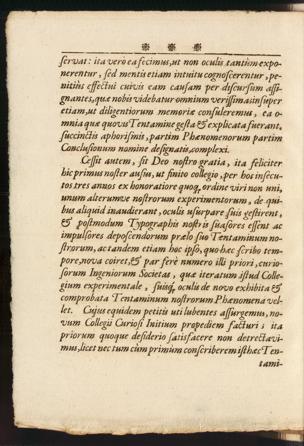 servat: ita vero ea fecimus, ut non oculis tantùm expo-
nerentur, sed mentis etiam intuitu cognoscerentur, pe-
nitiùs effectui cuivis eam causam per discursum assi-
gnantes, quæ nobis videbatur omnium verissima: insuper
etiam, ut diligentiorum memoriæ consuleremus, ea o-
mnia quæ quovis Tentamine gesta & explicata fuerant,
succinctis aphorismis, partim Phænomenorum partim
Conclusionum nomine designatis, complexi.
Cessit autem, sit Deo nostro gratia, ita feliciter
hic primus noster ausus, ut finito collegio, per hos insecu-
tos tres annos ex honoratiore quoq; ordine viri non uni,
unum alterumve nostrorum experimentorum, de qui-
bus aliquid inaudierant, oculis usurpare suis gestirent,
& postmodum Typographis nostris suasores essent ac
impulsores deposcendorum prælo suo Tentaminum no-
strorum, ac tandem etiam hoc ipso, quo hæc scribo tem-
pore, nova coiret, & par ferè numero illi priori, curio-
sorum Ingeniorum Societas, quæ iteratum istud Colle-
gium experimentale, suisq; oculis de novo exhibita &
comprobata Tentaminum nostrorum Phænomena vel-
let. Cujus equidem petitis uti lubentes assurgemus, no-
vum Collegii Curiosi Initium propediem facturi; ita
priorum quoque desiderio satisfacere non detrectavi-
mus, licet nec tum cùm primùm conscriberem isthæc Ten-
tami-